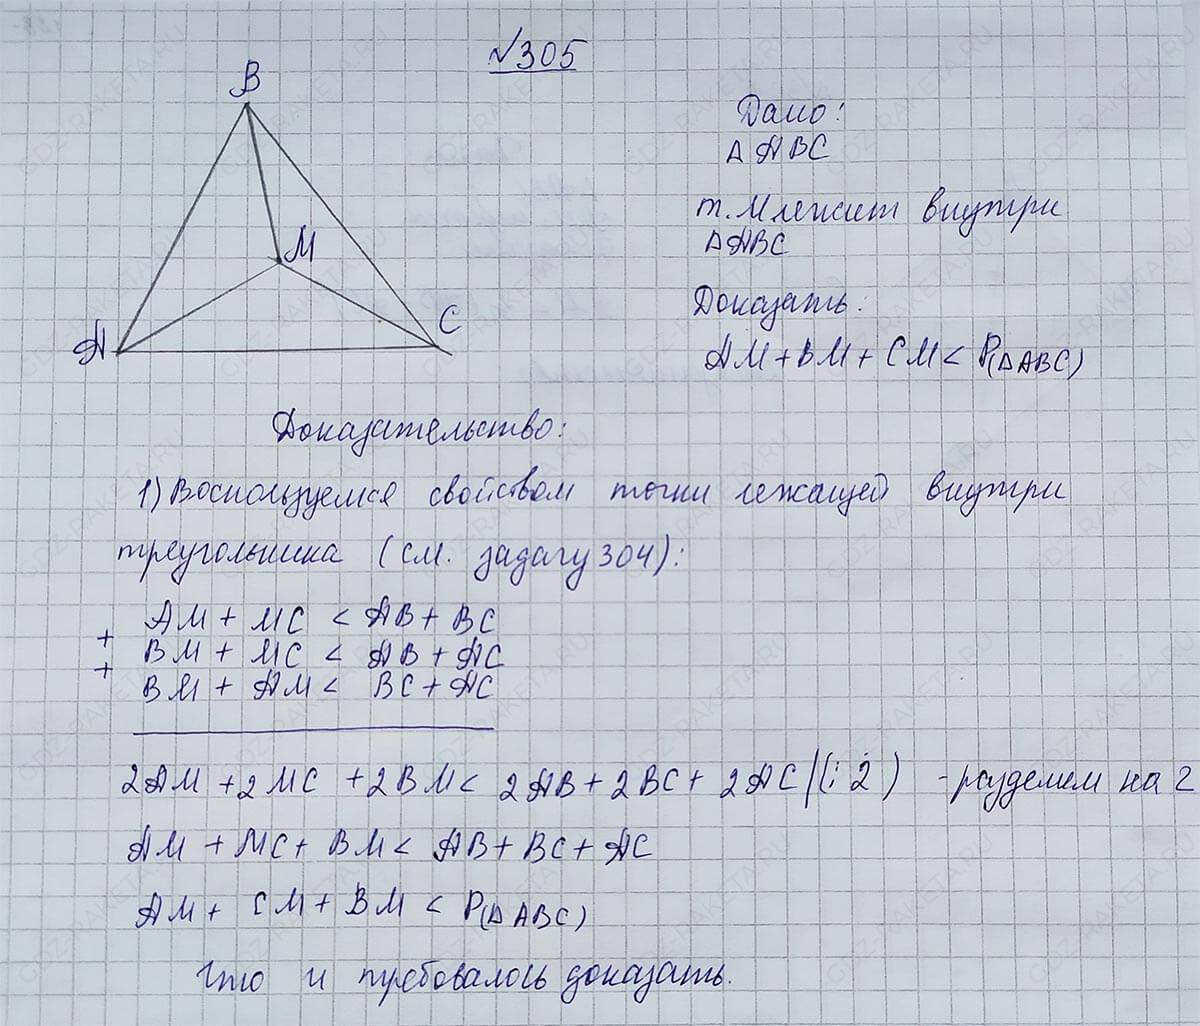 №305
B
M
A
C
Дано:
Δ ABC
т. M лежит внутри
ΔABC
Доказать:
AM + BM + CM < P(ΔABC)
Доказательство:
1) Воспользуемся свойством точки лежащей внутри
треугольника (см. задачу 304):
AM + MC < AB + BC
+
BM + MC < AB + AC
+
BM + AM < BC + AC
2AM + 2MC + 2BM < 2AB + 2BC + 2AC |(: 2) - разделем на 2
AM + MC + BM < AB + BC + AC
AM + CM + BM < P(ΔABC)
Что и требовалось доказать.
GDZ-RAKETA.RU